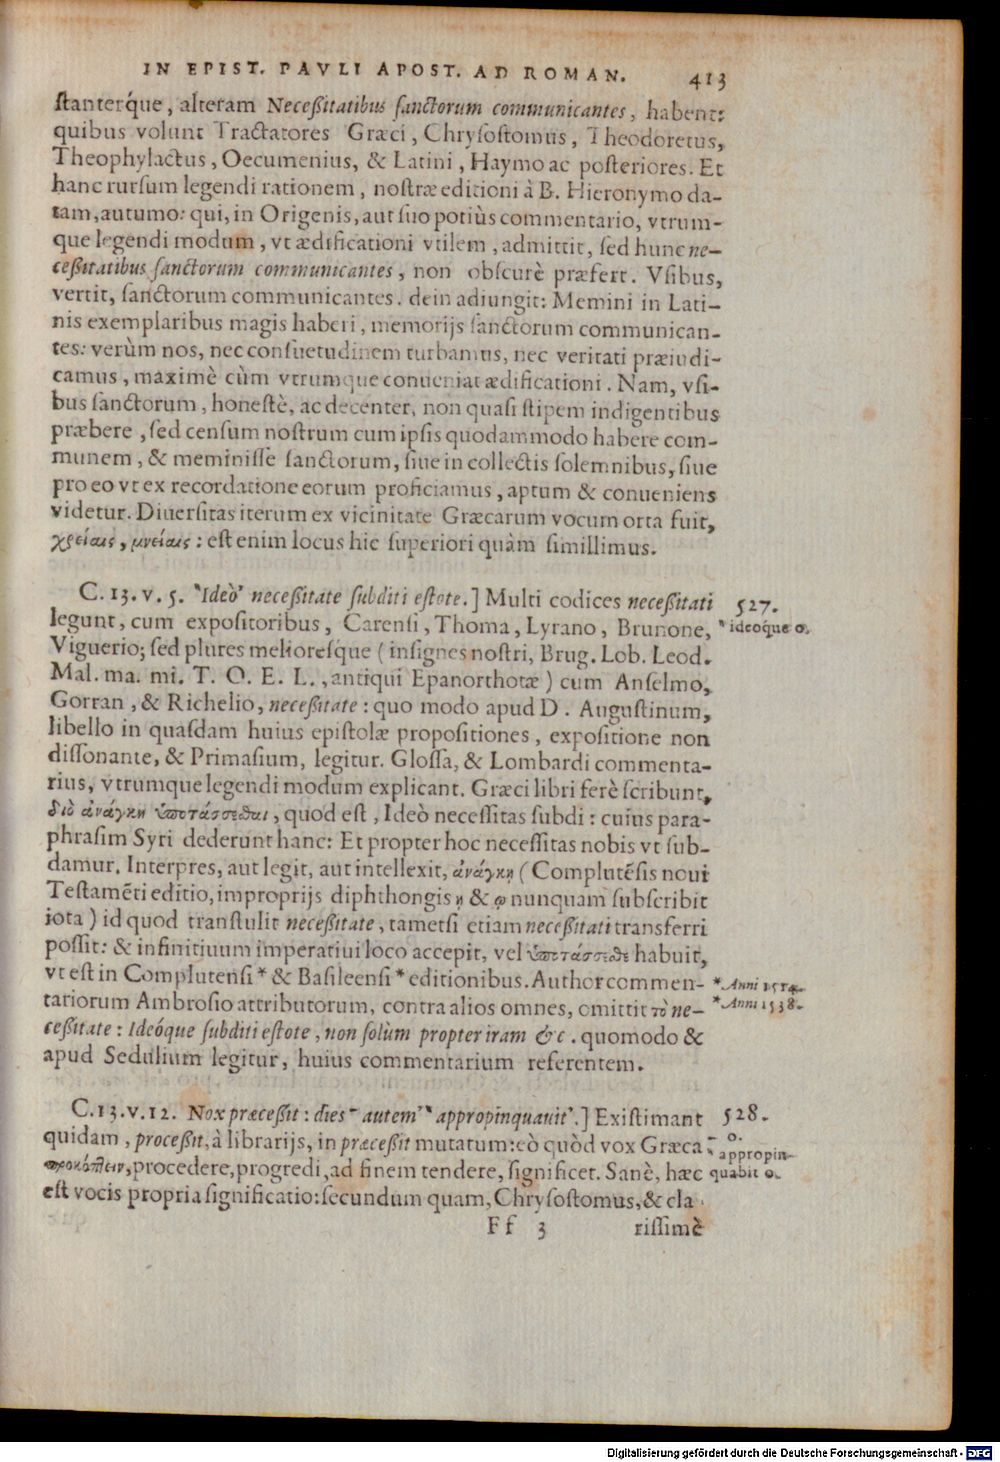 IN EPIST. PAVLI APOST. AD ROMAN. 413
ſtanterq́ue, alteram Neceßitatibus ſanctorum communicantes, habent:
quibus volunt Tractatores Græci, Chryſoſtomus, Theodoretus,
Theophylactus, Oecumenius, & Latini, Haymo ac poſteriores. Et
hanc rurſum legendi rationem, noſtræ editioni à B. Hieronymo da-
tam, autumo: qui, in Origenis, aut ſuo potiùs commentario, vtrum-
que legendi modum, vt ædificationi vtilem, admittit, ſed hunc ne-
ceßitatibus ſanctorum communicantes, non obſcurè præfert. Vſibus,
vertit, ſanctorum communicantes. dein adiungit: Memini in Lati-
nis exemplaribus magis haberi, memorijs ſanctorum communican-
tes: verùm nos, nec conſuetudinem turbamus, nec veritati præiudi-
camus, maximè cùm vtrumque conueniat ædificationi. Nam, vſi-
bus ſanctorum, honeſtè, ac decenter, non quaſi ſtipem indigentibus
præbere, ſed cenſum noſtrum cum ipſis quodammodo habere com-
munem, & meminiſſe ſanctorum, ſiue in collectis ſolemnibus, ſiue
pro eo vt ex recordatione eorum proficiamus, aptum & conueniens
videtur. Diuerſitas iterum ex vicinitate Græcarum vocum orta fuit,
χρείαις, μνείαις: eſt enim locus hic ſuperiori quàm ſimillimus.
C. 13. v. 5. ‵Ideò′ neceßitate ſubditi eſtote.] Multi codices neceßitati 527.
legunt, cum expoſitoribus, Carenſi, Thoma, Lyrano, Brunone, ‵ideoque o.
Viguerio; ſed plures melioreſque (inſignes noſtri, Brug. Lob. Leod.
Mal. ma. mi. T. O. E. L., antiqui Epanorthotæ) cum Anſelmo,
Gorran, & Richelio, neceßitate: quo modo apud D. Auguſtinum,
libello in quaſdam huius epiſtolæ propoſitiones, expoſitione non
diſſonante, & Primaſium, legitur. Gloſſa, & Lombardi commenta-
rius, vtrumque legendi modum explicant. Græci libri ferè ſcribunt,
διὸ ἀνάγκη ὑποτάσσεσθαι, quod eſt, Ideò neceſſitas ſubdi: cuius para-
phraſim Syri dederunt hanc: Et propter hoc neceſſitas nobis vt ſub-
damur. Interpres, aut legit, aut intellexit, ἀνάγκῃ (Complutẽſis noui
Teſtamẽti editio, improprijs diphthongis ῃ & ῳ nunquam ſubſcribit
iota) id quod tranſtulit neceßitate, tametſi etiam neceßitati transferri
poſſit: & infinitiuum imperatiui loco accepit, vel ὑποτάσσεσθε habuit,
vt eſt in Complutenſi * & Baſileenſi * editionibus. Author commen- * Anni 1514.
tariorum Ambroſio attributorum, contra alios omnes, omittit τὸ ne- * Anni 1538.
ceßitate: Ideóque ſubditi eſtote, non ſolùm propter iram &c. quomodo &
apud Sedulium legitur, huius commentarium referentem.
C. 13. v. 12. Nox præceßit: dies ⁻ autem′ ‵appropinquauit′.] Exiſtimant 528.
quidam, proceßit, à librarijs, in præceßit mutatum: eò quòd vox Græca ⁻ o.
‵appropin-
προκόπτειν, procedere, progredi, ad finem tendere, ſignificet. Sanè, hæc quabit o.
eſt vocis propria ſignificatio: ſecundum quam, Chryſoſtomus, & cla-
Ff 3 riſſimè
Digitalisierung gefördert durch die Deutsche Forschungsgemeinschaft - DFG